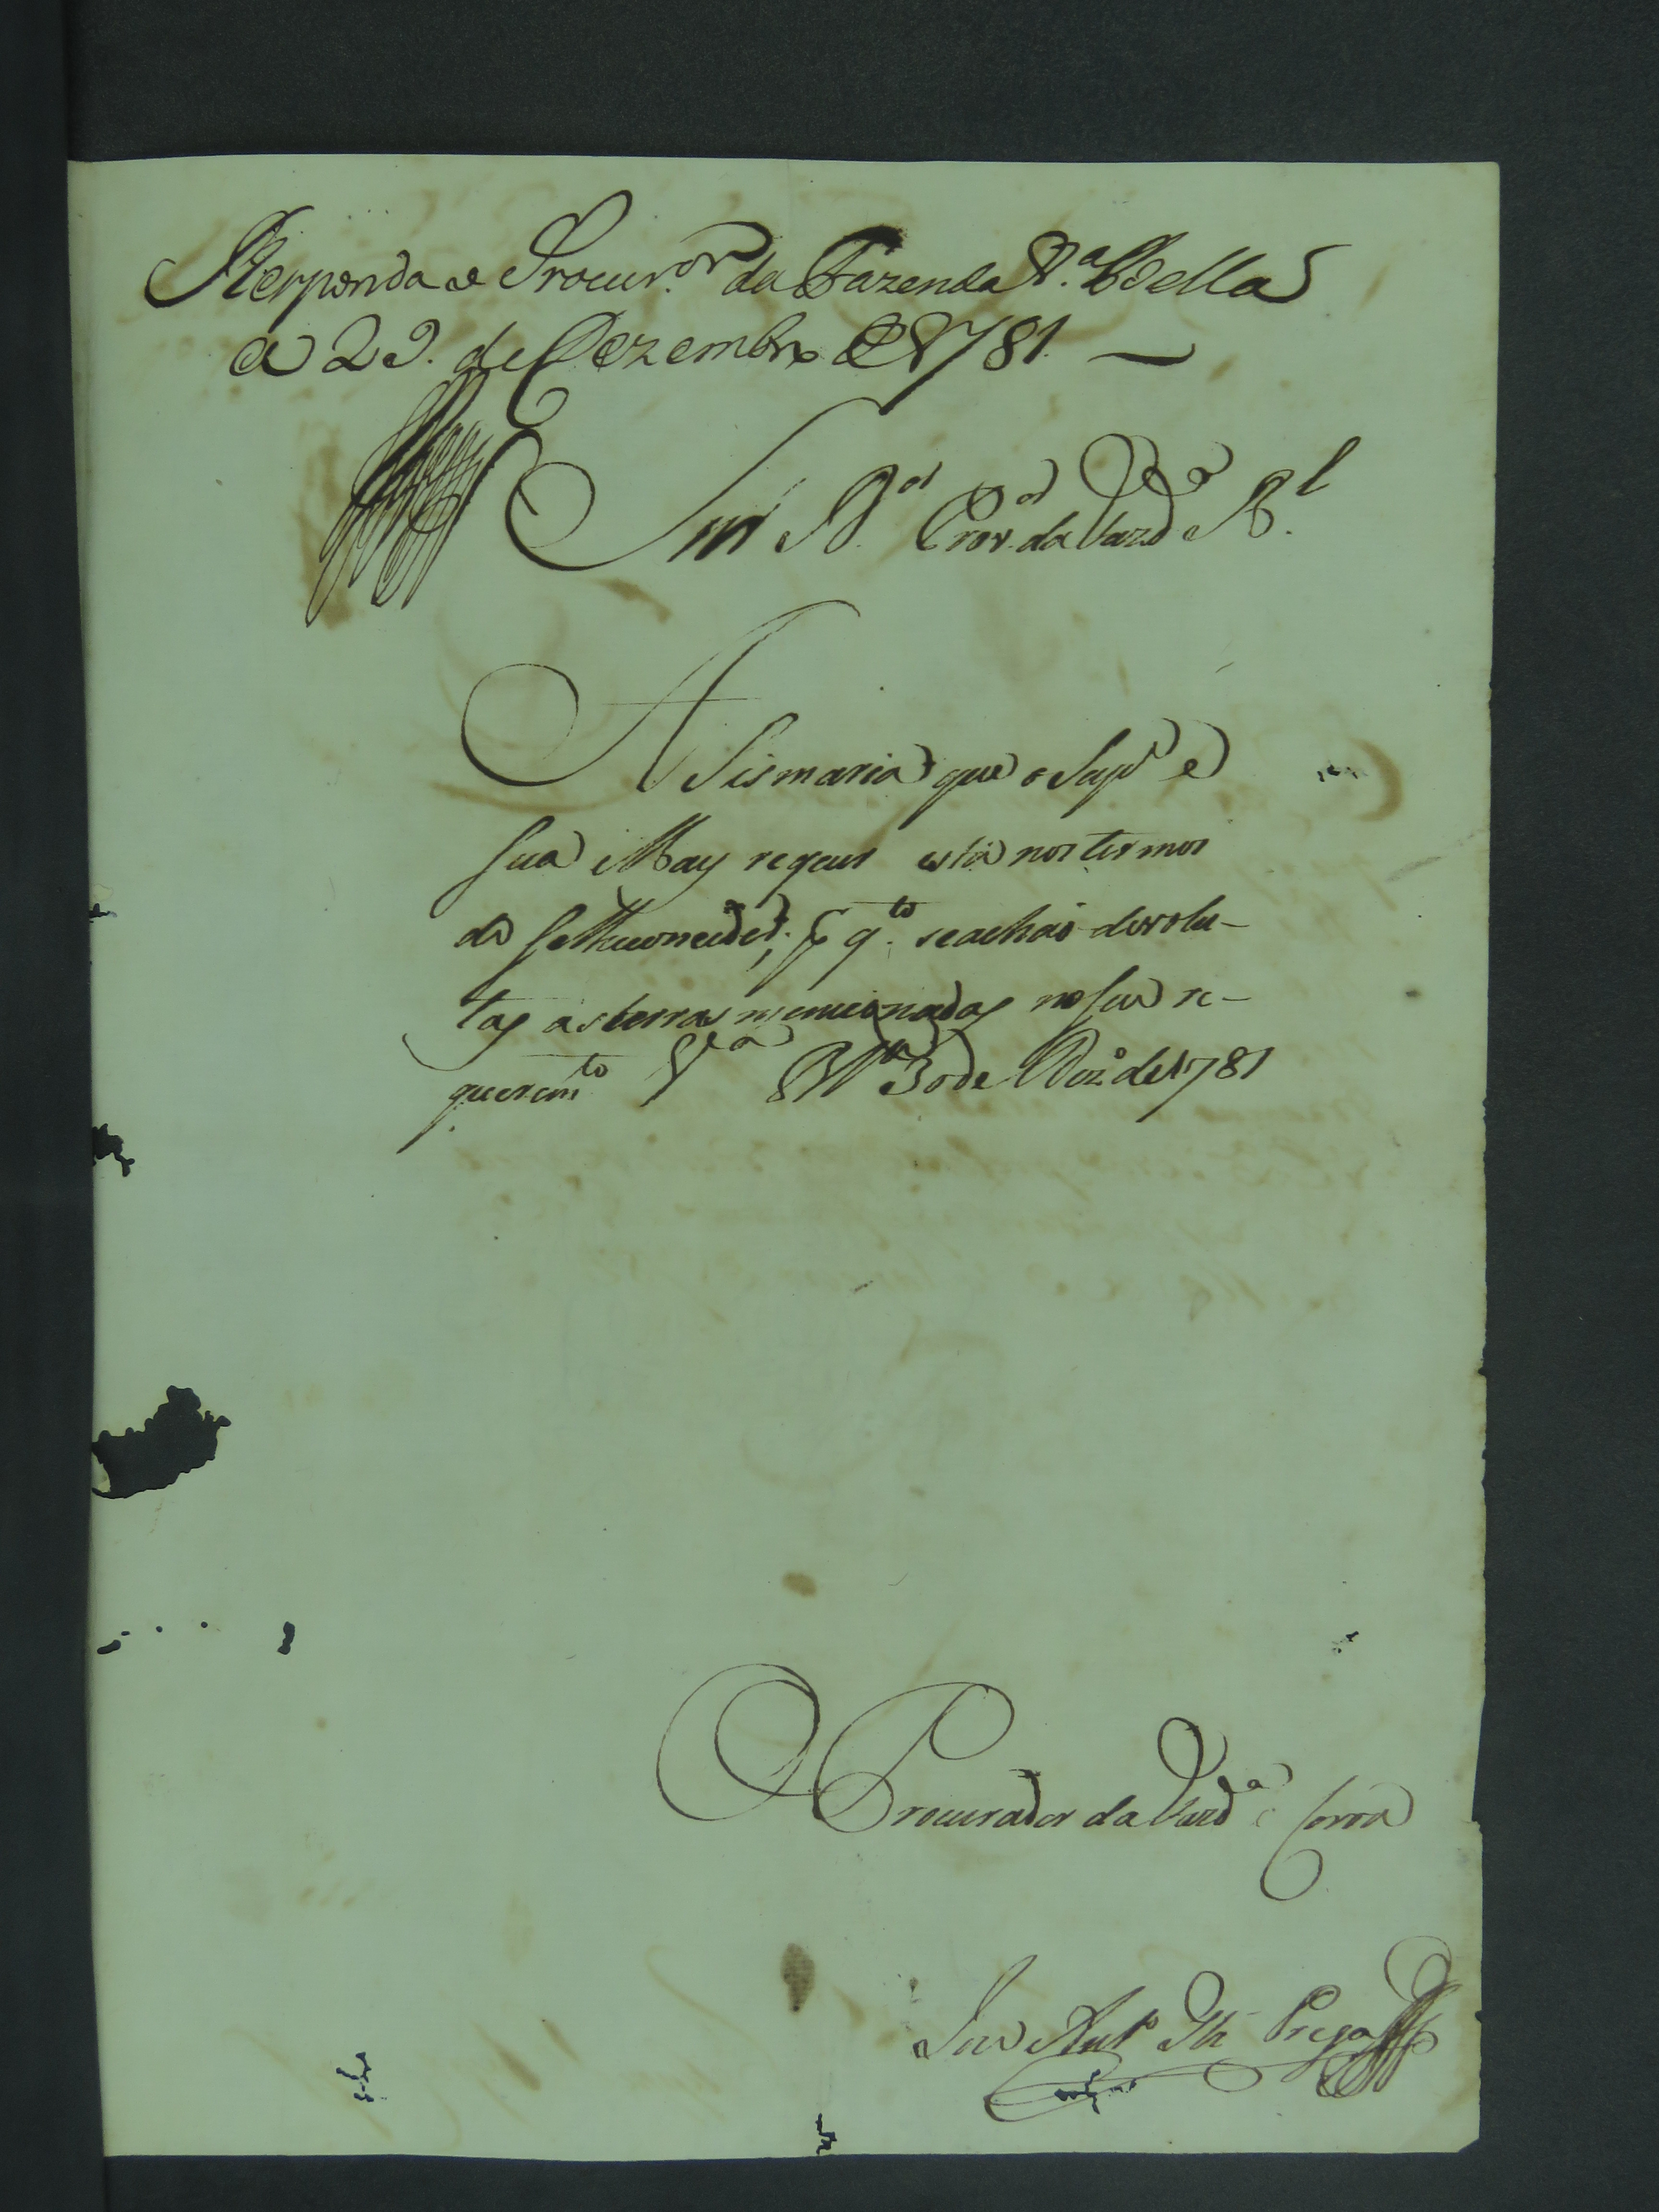 Responda o Procur.or da Fazenda V.a Bella
a 29. de Dezembro de 1781. —
Snr D.or Prov.or da Fazd.a R.l
A Sismaria que o Sup.e e
sua May requer está nos termos
de se lhe conceder; p q.to se achaõ devolu-
tas as terras mencionadas no seu re-
querim.to V.a B.a 30 de Dez.o de 1781
O Procurador da Fazd.a e Coroa